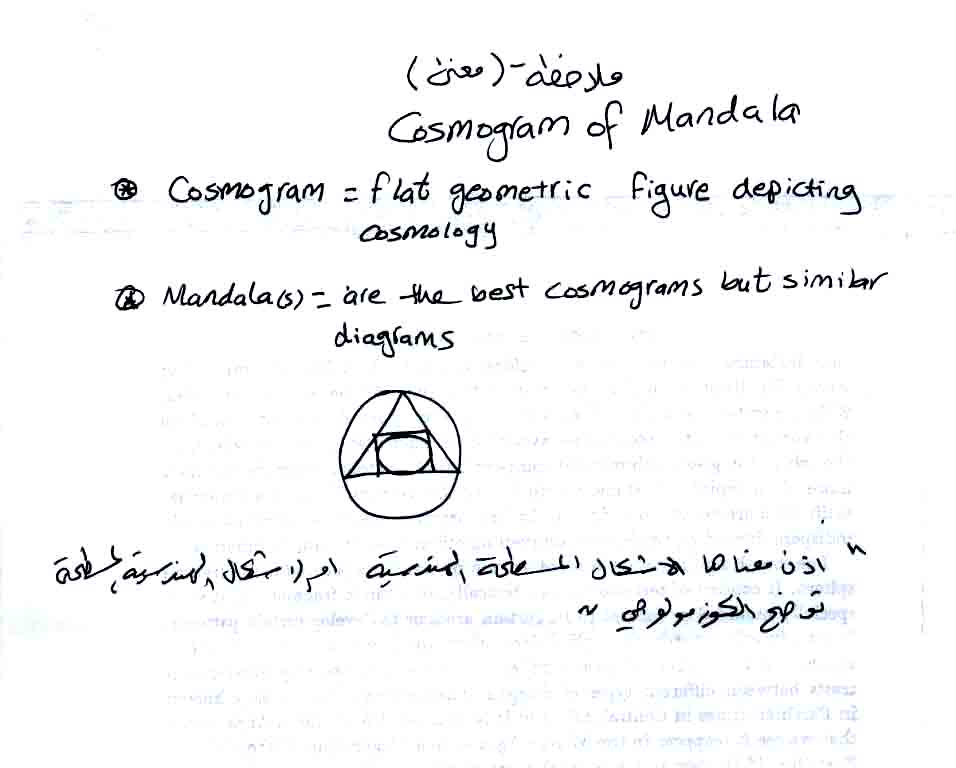 ملاحظة - (معنى)
Cosmogram of Mandala
Cosmogram = flat geometric figure depicting
cosmology
Mandala(s) = are the best cosmograms but similar
diagrams
" اذن معناها الاشكال المسطحة الهندسية او الاشكال الهندسية المسطحة
توضح الكوزمولوجي "